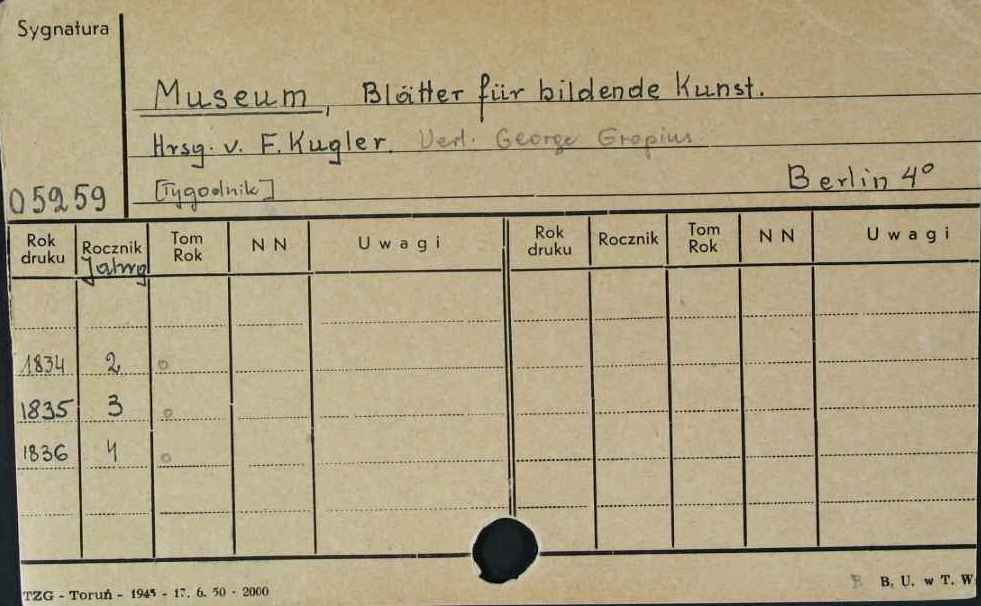 Sygnatura
Museum, Blätter für bildende Kunst.
Hrsg. v. F. Kugler. Verl. George Gropius
[Tygodnik] Berlin 4°
05959
Rok druku Rocznik Jahrg Tom Rok NN Uwagi Rok druku Rocznik Tom Rok NN Uwagi
1834 2 o
1835 3 o
1836 4 o
TZG - Toruń - 1945 - 17. 6. 50 - 2000 B. U. w T. W